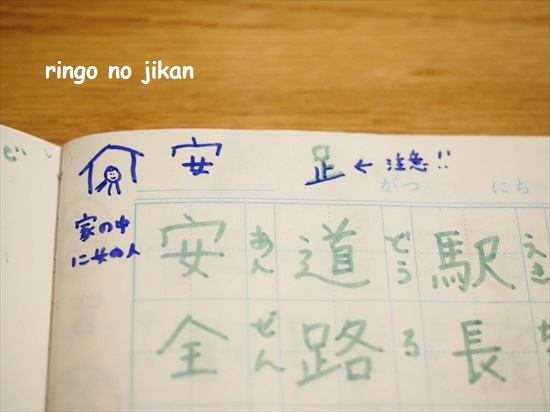 ringo no jikan
安
足 ← 注意!!
がつ にち
家の中
に女の人
安全
あんぜん
道路
どうろ
駅長
えき